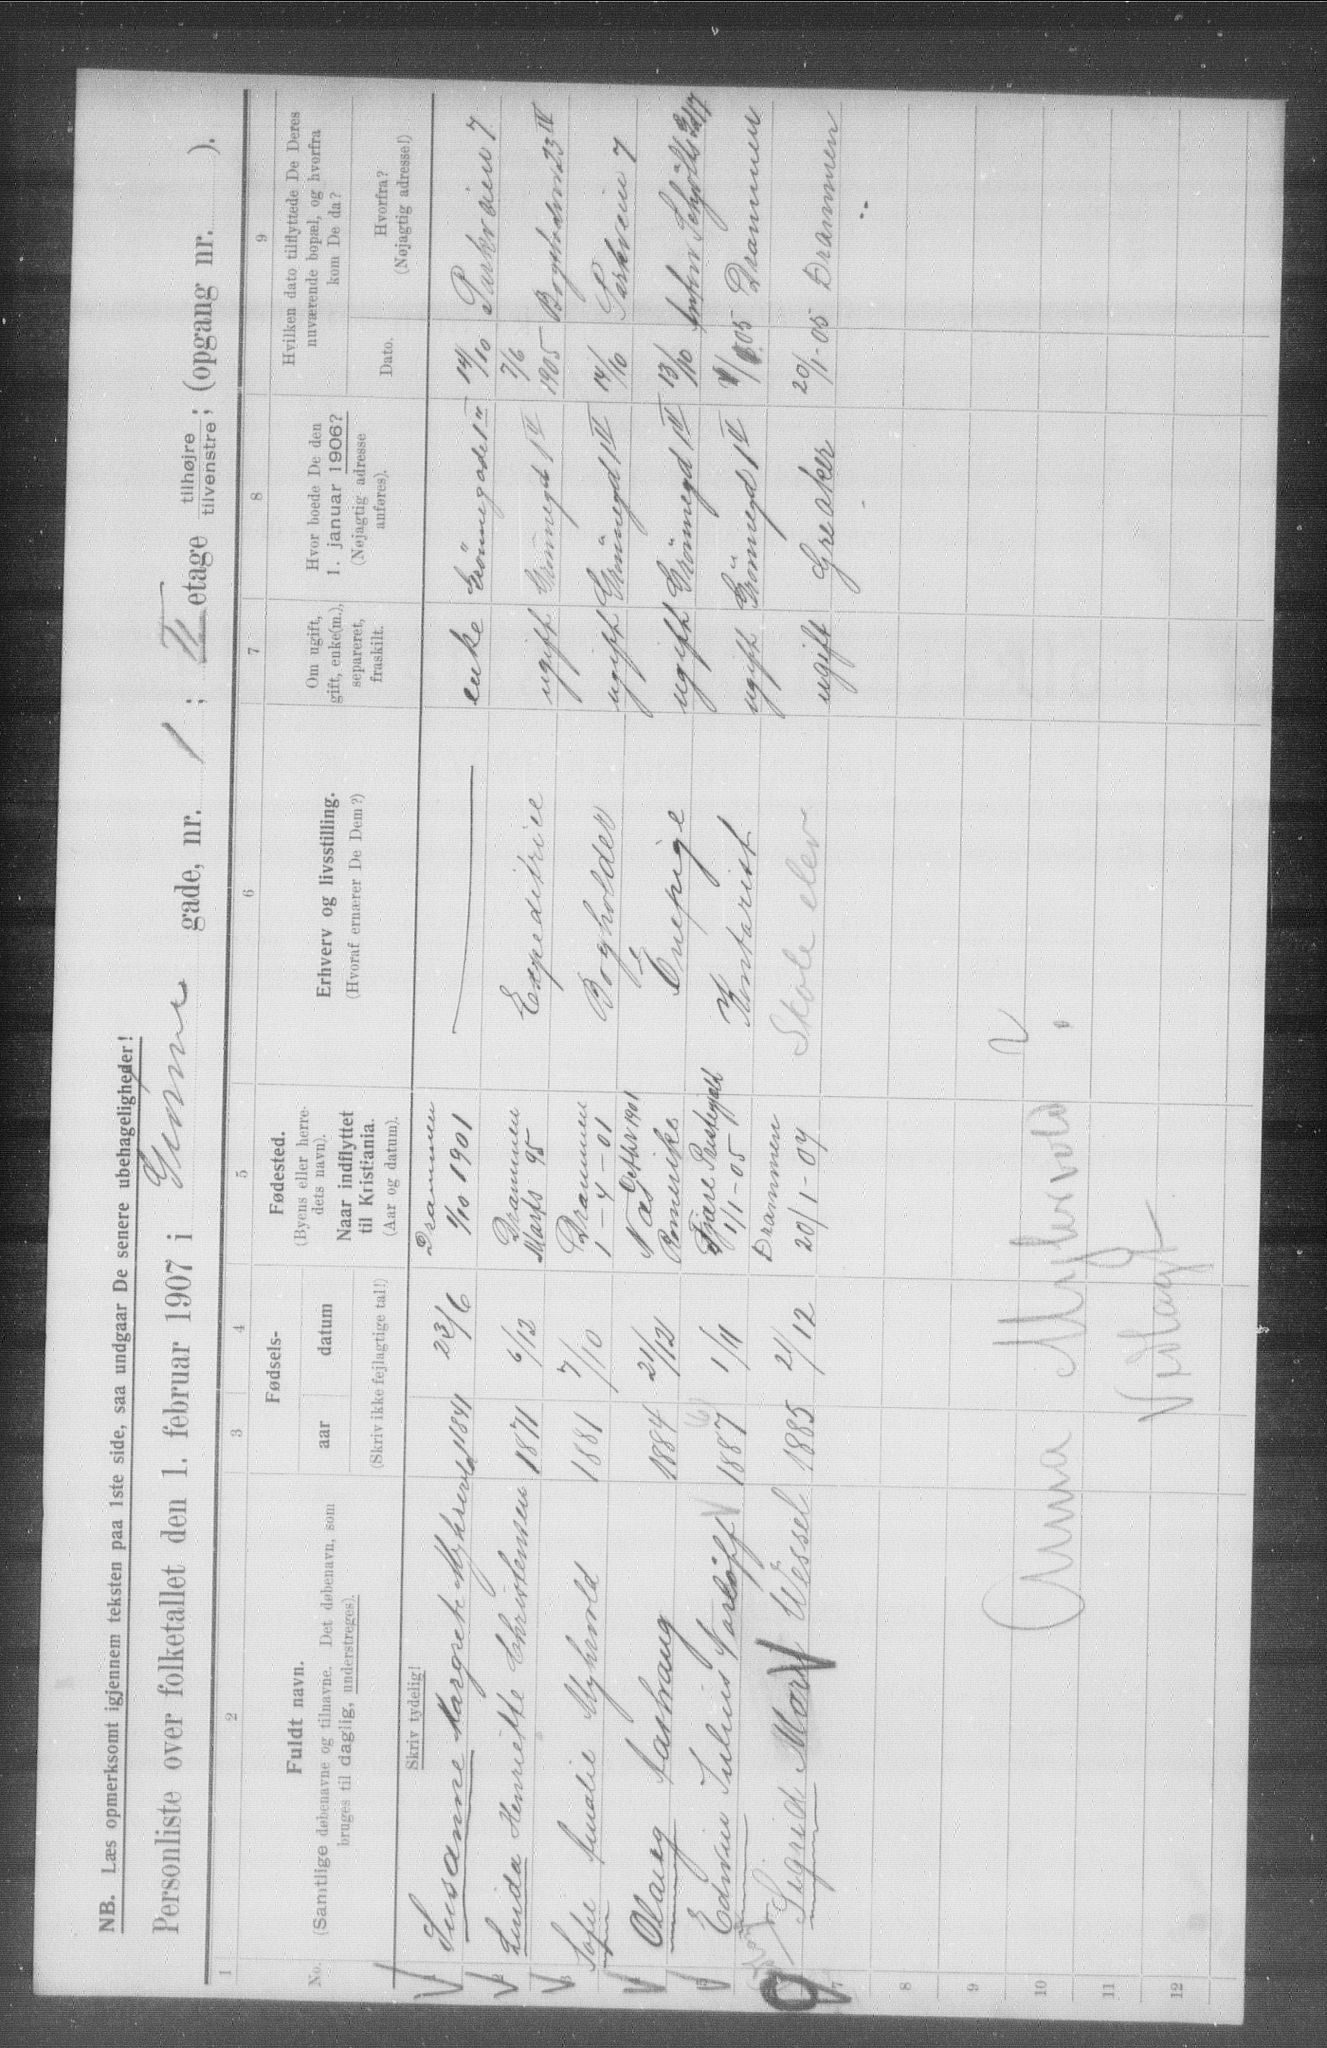 NB. Læs opmerksomt igjennem teksten paa 1ste side, saa undgaar De senere ubehageligheder!
Personliste over folketallet den 1. februar 1907 i Grønne gade, nr. 1; IV etage tilhøjre / tilvenstre; (opgang nr. ).
1 2 3 4 5 6 7 8 9
No.
Fuldt navn.
(Samtlige døbenavne og tilnavne. Det døbenavn, som
bruges til daglig, understreges).
Skriv tydelig!
Fødsels-
aar datum
(Skriv ikke fejlagtige tal!)
Fødested.
(Byens eller herre-
dets navn).
Naar indflyttet
til Kristiania.
(Aar og datum).
Erhverv og livsstilling.
(Hvoraf ernærer De Dem?)
Om ugift,
gift, enke(m.),
separeret,
fraskilt.
Hvor boede De den
1. januar 1906?
(Nøjagtig adresse
anføres).
Hvilken dato tilflyttede De Deres
nuværende bopæl, og hvorfra
kom De da?
Dato.
Hvorfra?
(Nøjagtig adresse!)
1 Susanne Margrete Myhrvold 1841 23/6 Drammen 1/10 1901 enke Grönnegade 1 14/10 Parkveien 7
2 Linda Henriette Christensen 1871 6/12 Drammen Marts 95 Expeditrice ugift Grönnegd 1 IV 7/6 1905 23 IV
3 Sofie Amalie Myhrvold 1881 7/10 Drammen 1-4-01 Bogholder ugift Grünnegd 1 IV 14/10 Parkveien 7
4 Olaug Aashaug 1884 21/12 Næs Romerike 1901 Enepige ugift Grönnegd 1 IV 13/10
5 Edvin Julius 1887 1/11 1/1-05 Kontorist ugift Grönnegd 1 IV 05 Drammen
6 Sigrid Wessel 1885 21/12 Drammen 20/1-07 Skoleelev ugift Greaker 20/1-05 Drammen
7
8
9
10
11
12
Anna Myhrvold?